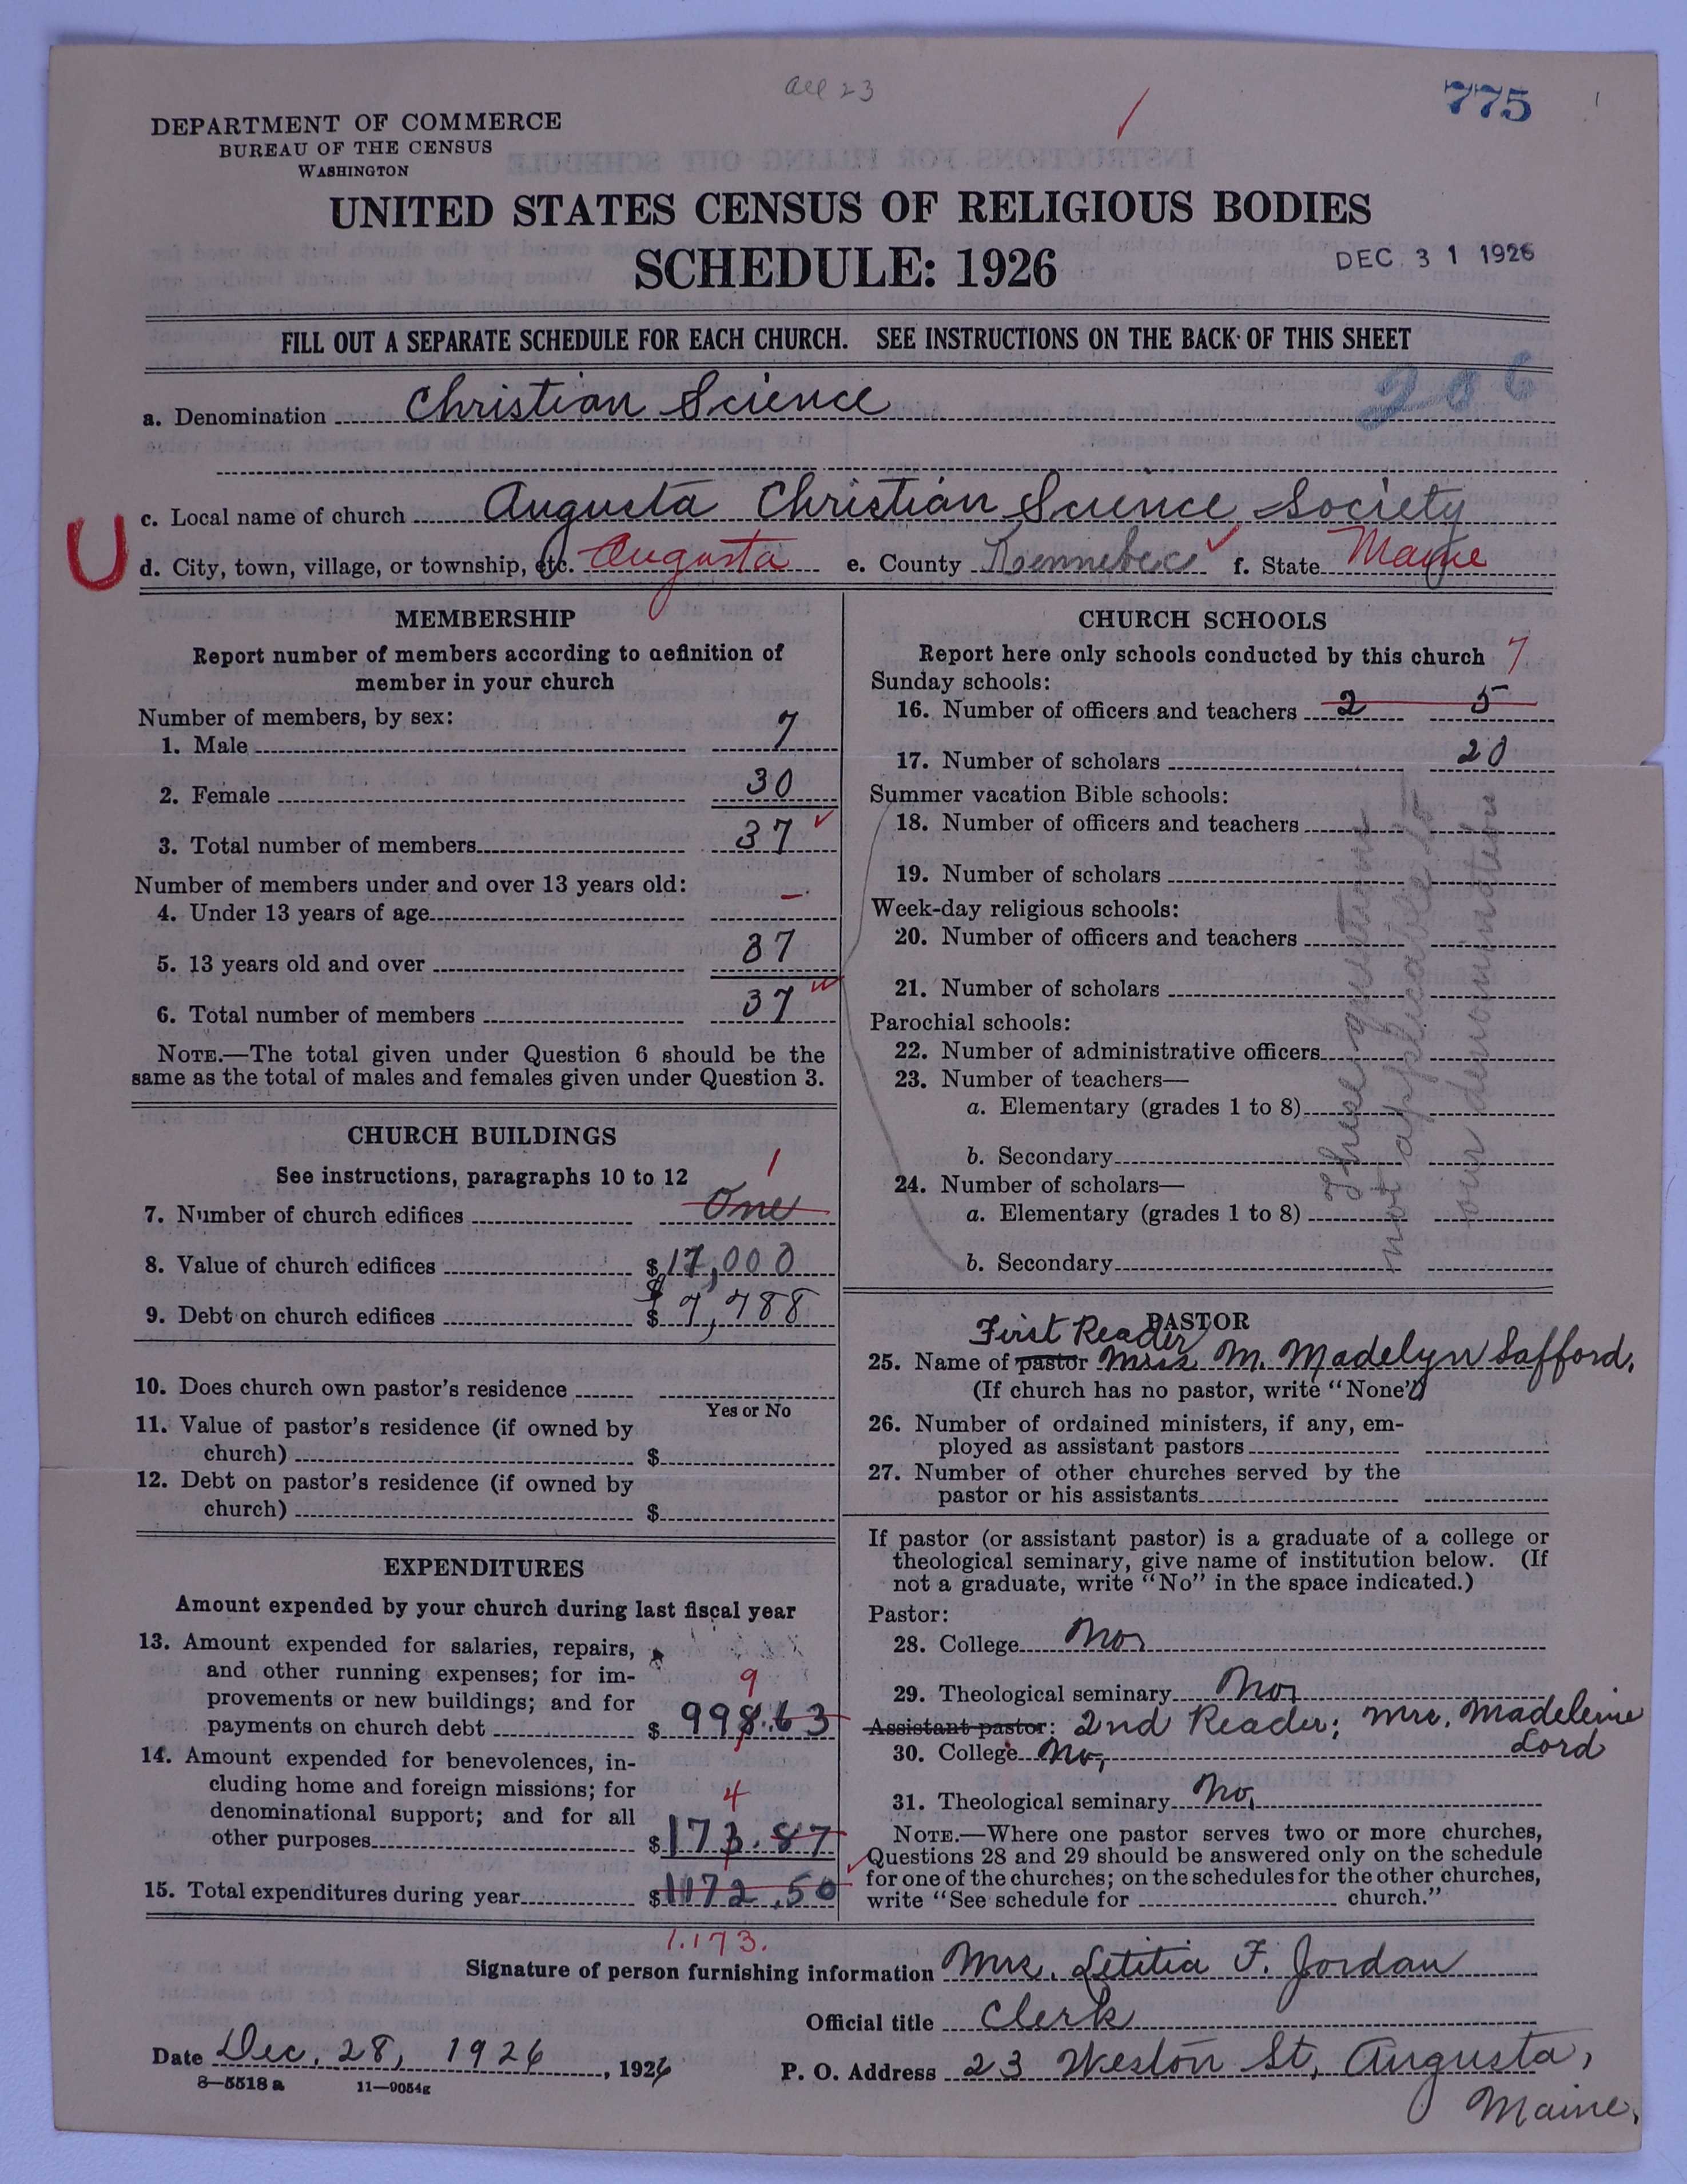 all 23
775
DEPARTMENT OF COMMERCE
BUREAU OF THE CENSUS
WASHINGTON
UNITED STATES CENSUS OF RELIGIOUS BODIES
SCHEDULE: 1926
DEC 31 1926
FILL OUT A SEPARATE SCHEDULE FOR EACH CHURCH. SEE INSTRUCTIONS ON THE BACK OF THIS SHEET
206
a. Denomination Christian Science
c. Local name of church Augusta Christian Science Society
U
d. City, town, village, or township, etc. Augusta e. County Kennebec f. State Maine
MEMBERSHIP
Report number of members according to definition of
member in your church
Number of members, by sex:
1. Male 7
2. Female 30
3. Total number of members 37
Number of members under and over 13 years old:
4. Under 13 years of age –
5. 13 years old and over 37
6. Total number of members 37
NOTE.—The total given under Question 6 should be the
same as the total of males and females given under Question 3.
CHURCH BUILDINGS
See instructions, paragraphs 10 to 12
1
7. Number of church edifices One
8. Value of church edifices $17,000
9. Debt on church edifices $ $7,788
10. Does church own pastor's residence
Yes or No
11. Value of pastor's residence (if owned by
church) $
12. Debt on pastor's residence (if owned by
church) $
EXPENDITURES
Amount expended by your church during last fiscal year
13. Amount expended for salaries, repairs,
and other running expenses; for im-
provements or new buildings; and for
9
payments on church debt $ 998.63
14. Amount expended for benevolences, in-
cluding home and foreign missions; for
denominational support; and for all
4
other purposes $173.87
15. Total expenditures during year $1172.50
1.173.
CHURCH SCHOOLS
Report here only schools conducted by this church
7
Sunday schools:
16. Number of officers and teachers 2 5
17. Number of scholars 20
Summer vacation Bible schools:
18. Number of officers and teachers
19. Number of scholars
Week-day religious schools:
20. Number of officers and teachers
21. Number of scholars
Parochial schools:
22. Number of administrative officers
23. Number of teachers—
a. Elementary (grades 1 to 8)
b. Secondary
24. Number of scholars—
a. Elementary (grades 1 to 8)
b. Secondary
These questions
not applicable to
our denomination
PASTOR
First Reader
25. Name of pastor Mrs. M. Madelyn Safford.
(If church has no pastor, write "None")
26. Number of ordained ministers, if any, em-
ployed as assistant pastors
27. Number of other churches served by the
pastor or his assistants
If pastor (or assistant pastor) is a graduate of a college or
theological seminary, give name of institution below. (If
not a graduate, write "No" in the space indicated.)
Pastor:
28. College No,
29. Theological seminary No,
Assistant pastor: 2nd Reader; Mrs. Madeleine
Lord
30. College No,
31. Theological seminary No,
NOTE.—Where one pastor serves two or more churches,
Questions 28 and 29 should be answered only on the schedule
for one of the churches; on the schedules for the other churches,
write "See schedule for church."
Signature of person furnishing information Mrs. Letitia F. Jordan
Official title Clerk
Date Dec. 28, 1926, 1926
P. O. Address 23 Weston St, Augusta,
Maine.
8—5518a 11—9054g